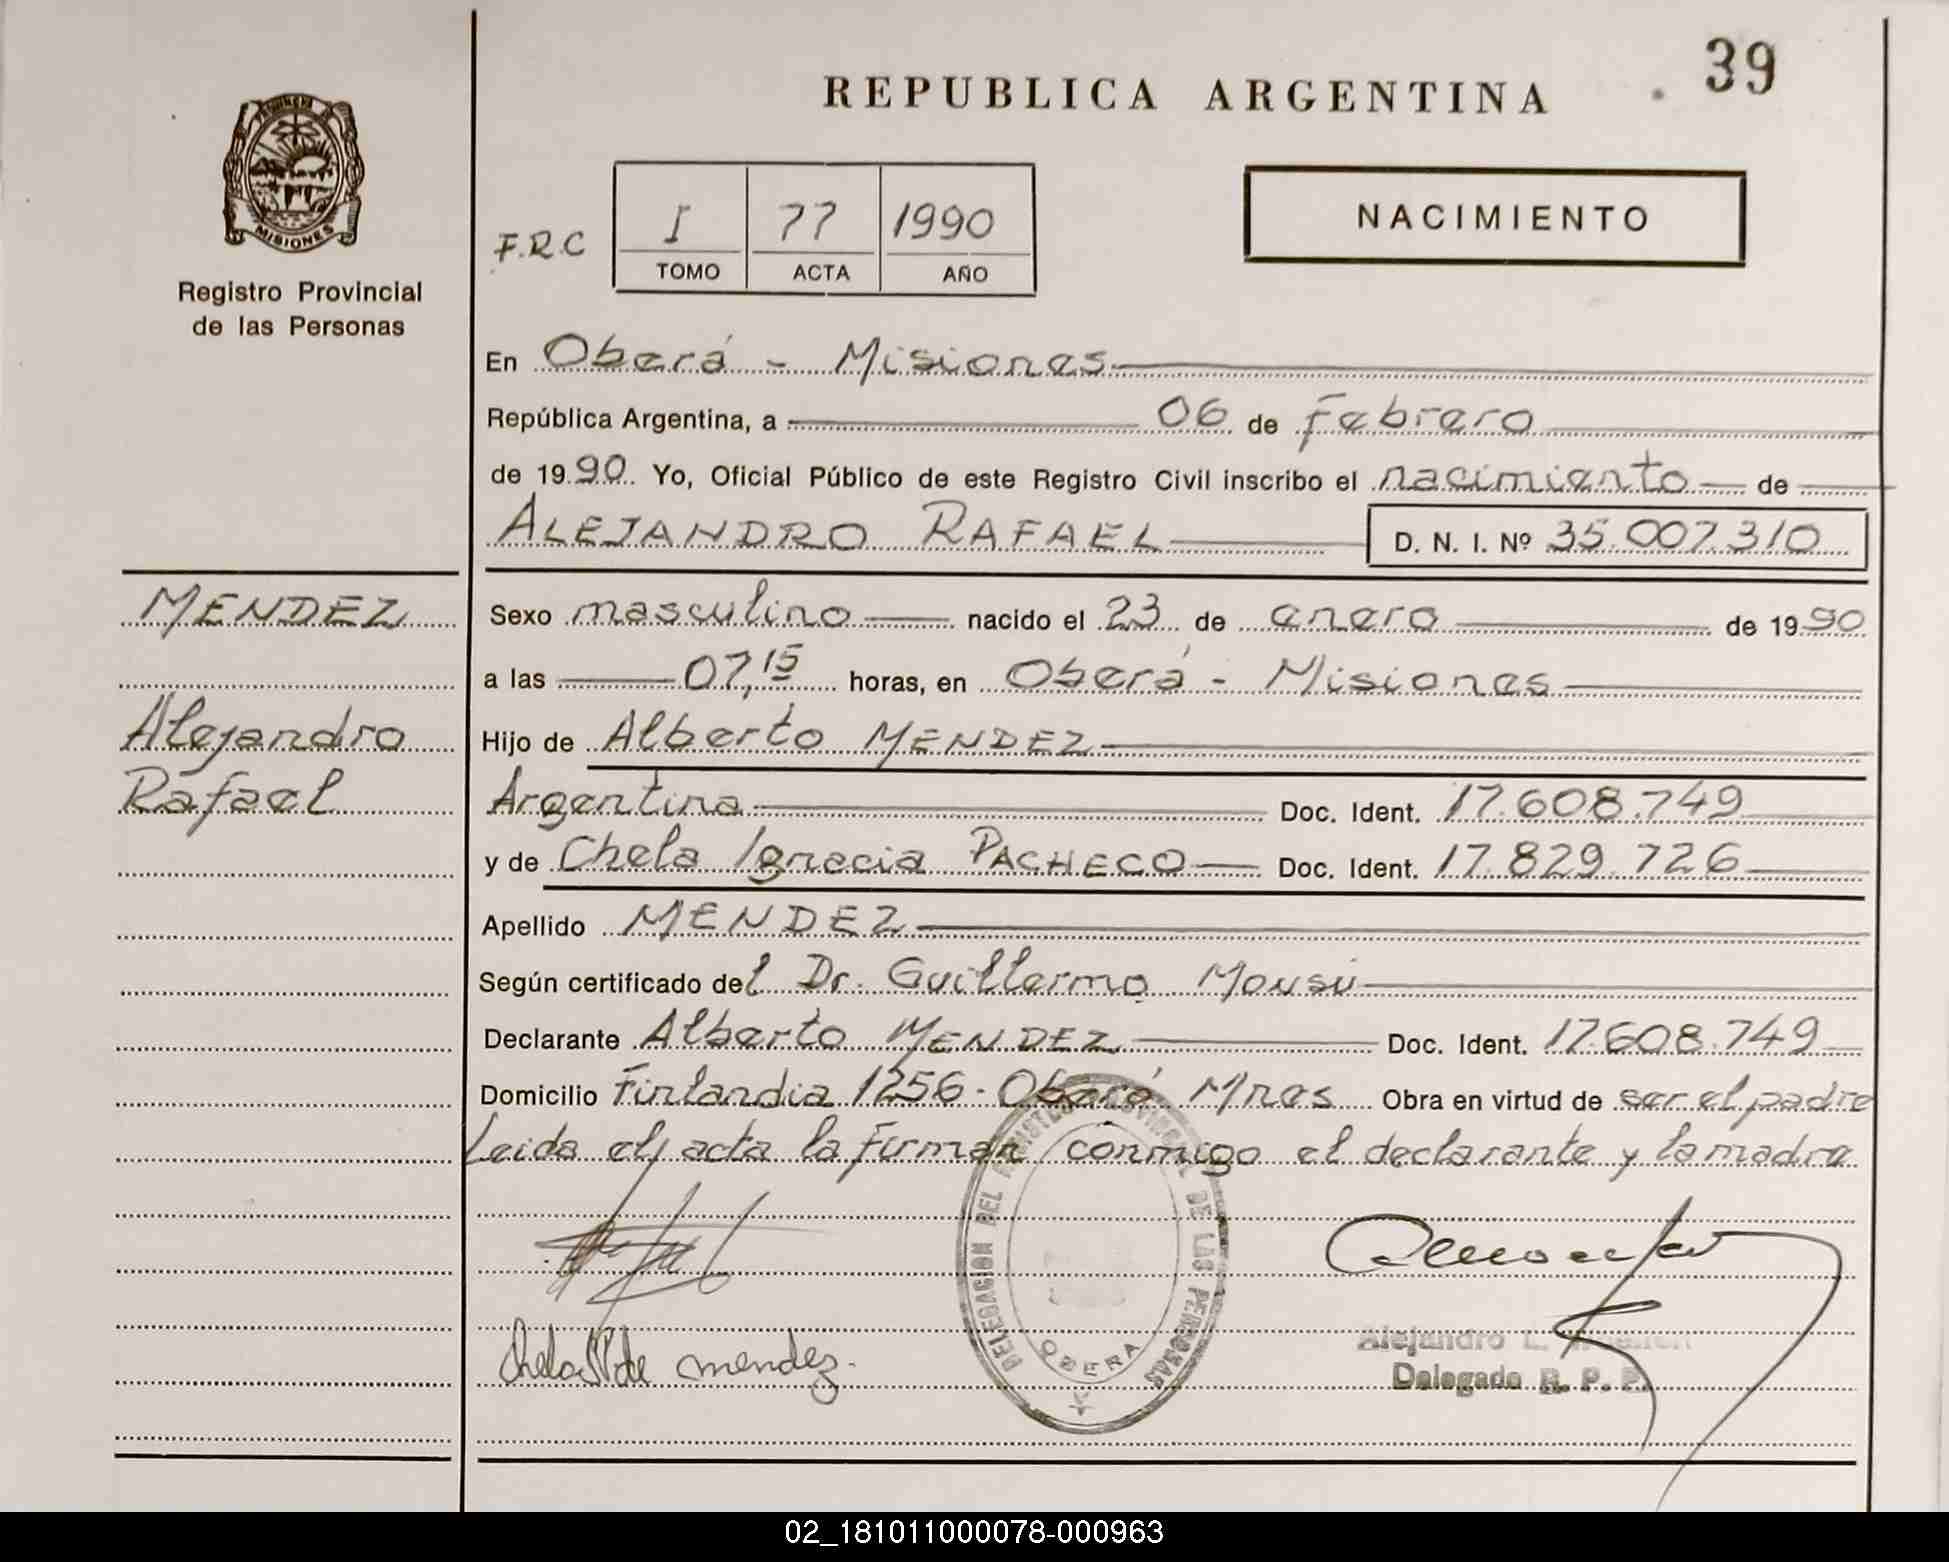 39
REPUBLICA ARGENTINA
MISIONES
Registro Provincial
de las Personas
F.R.C
I 77 1990
TOMO ACTA AÑO
NACIMIENTO
En Oberá - Misiones
República Argentina, a 06 de Febrero
de 1990 Yo, Oficial Público de este Registro Civil inscribo el nacimiento de
ALEJANDRO RAFAEL D. N. I. Nº 35.007.310
MENDEZ
Alejandro
Rafael
Sexo masculino nacido el 23 de enero de 1990
a las 07,15 horas, en Oberá - Misiones
Hijo de Alberto MENDEZ
Argentina Doc. Ident. 17.608.749
y de Chela Ignacia PACHECO Doc. Ident. 17.829.726
Apellido MENDEZ
Según certificado del Dr. Guillermo Mousú
Declarante Alberto MENDEZ Doc. Ident. 17.608.749
Domicilio Finlandia 1256 - Oberá Mnes Obra en virtud de ser el padre
Leida el acta la firman conmigo el declarante y la madre
DELEGACION DEL REGISTRO PROVINCIAL DE LAS PERSONAS
OBERA
Chela de mendez.
Alejandro L.
Delegado R. P. P.
02_181011000078-000963